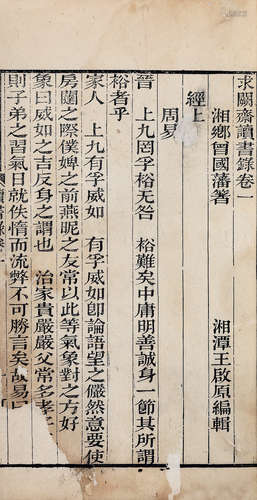 求闕齋讀書錄卷一
湘鄉曾國藩著 湘潭王啟原編輯
經上
周易
晉 上九罔孚裕无咎 裕難矣中庸明善誠身一節其所謂
裕者乎
家人 上九有孚威如 有孚威如卽論語望之儼然意要使
房闥之際僕婢之前燕昵之友常以此等氣象對之方好
象曰威如之吉反身之謂也 治家貴嚴嚴父常多孝子
則子弟之習氣日就佚惰而流弊不可勝言矣故易曰
讀書錄卷一